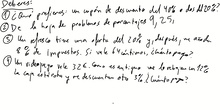 Deberes:
① ¿Qué prefieres: un cupón de descuento del 40% o dos del 20%?
② De la hoja de problemas de porcentajes 9, 25,
③ Un refresco tiene una oferta del 20% y, después, se añade
8% de impuestos. Si vale 64 céntimos, ¿cuánto pago?
④ Un videojuego vale 32€. Como es antiguo me lo rebajan un 12%
la caja está rota y me descuentan otro 3%. ¿Cuánto pago?